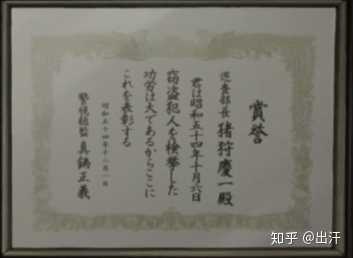 賞誉
巡査部長 猪狩慶一殿
君は昭和五十四年十月六日
窃盗犯人を検挙した
功労は大であるからここに
これを表彰する
昭和五十四年十二月一日
警視総監 真鍋正義
知乎 @出汗